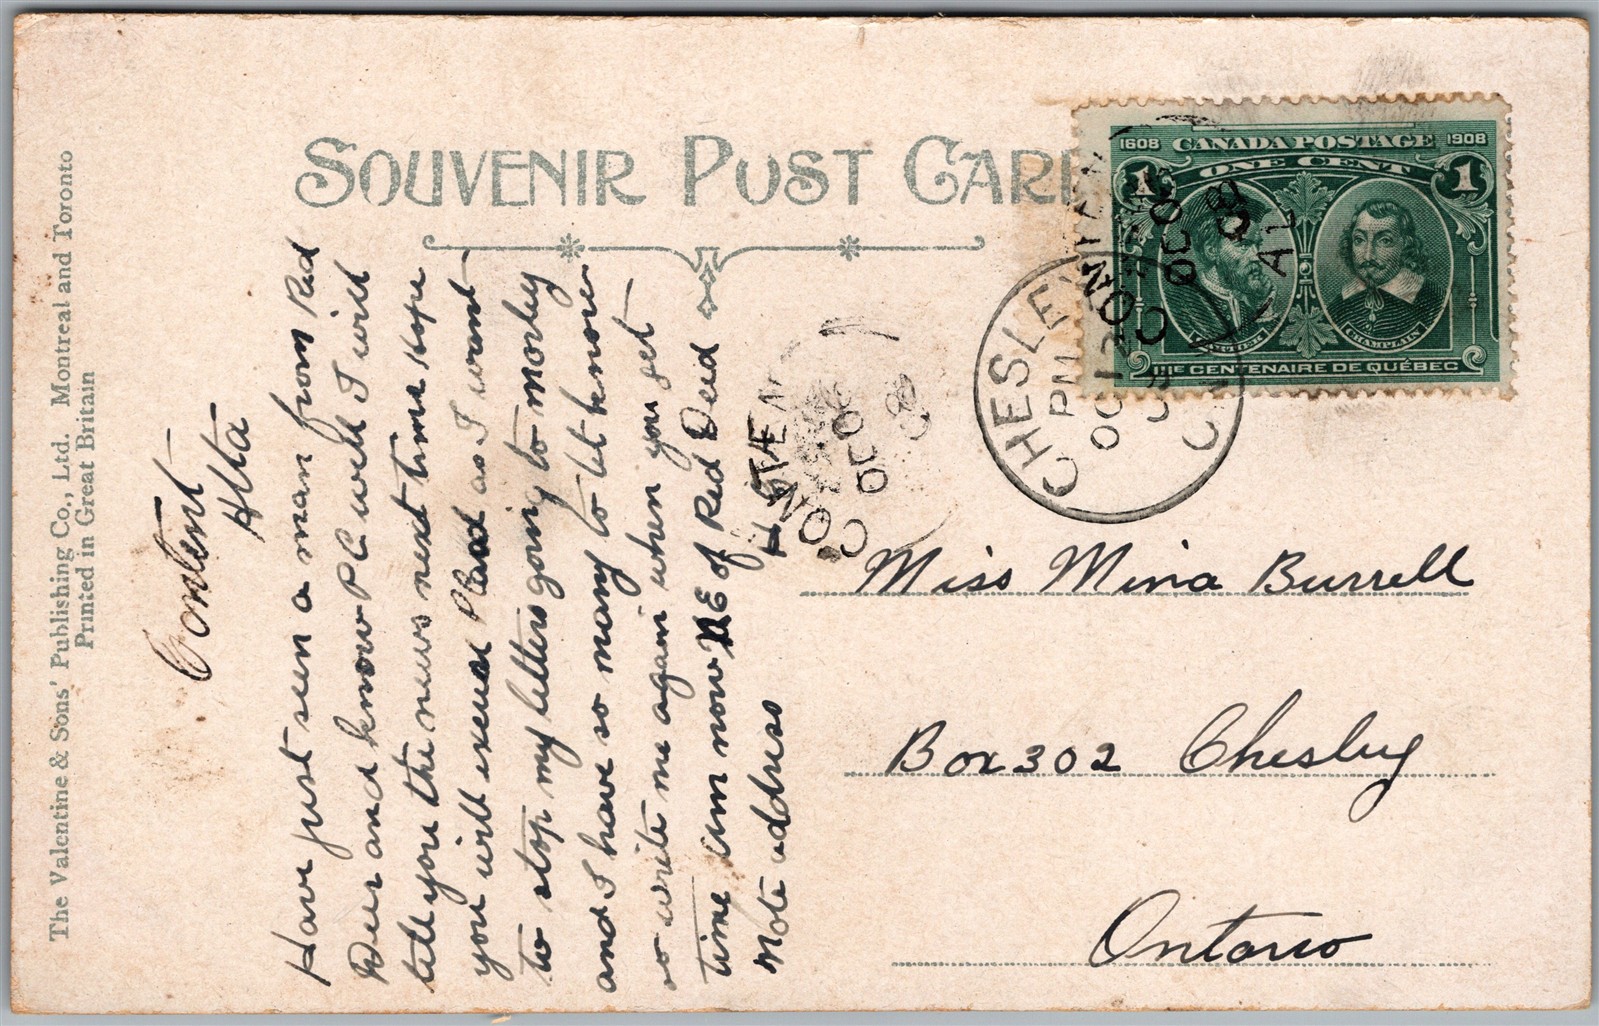 The Valentine & Sons' Publishing Co., Ltd. Montreal and Toronto
Printed in Great Britain
SOUVENIR POST CARD
1608 CANADA POSTAGE 1908
ONE CENT
1 1
CARTIER CHAMPLAIN
IIIe CENTENAIRE DE QUÉBEC
CHESLEY
PM
OC 13
CONTENT
OC
08
ALTA
CONTEN
OC
08
Content
Alta
Have just seen a man from Red
Deer and know P C well I will
tell you the news next time Hope
you will excuse Plead as I want
to stop my letters going to Morley
and I have so many to let know
so write me again when you get
time Am now NE of Red Deed
Note address H STE
Miss Mina Burrell
Box 302 Chesley
Ontario